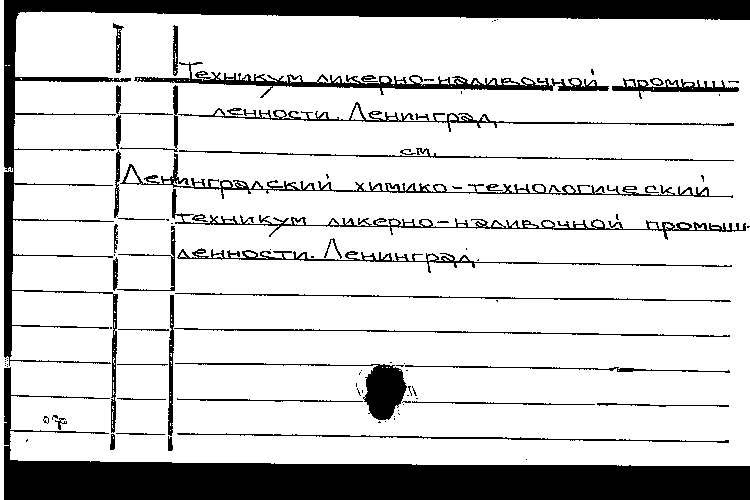 Техникум ликерно-наливочной промыш-
ленности. Ленинград.
см.
Ленинградский химико-технологический
техникум ликерно-наливочной промыш-
ленности. Ленинград.